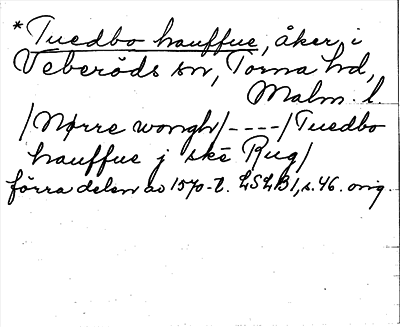 *Tuedbo hauffue, åker i
Veberöds sn, Torna hd,
Malm. l.
/Nørre wongh/----/Tuedbo
hauffue j skē Rug/
förra delen av 1570-t. LSLB1, s. 46. orig.